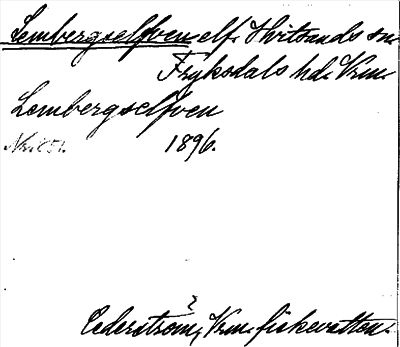 Lembergselfven elf. Hvitsands sn
Fryksdals hd. Vrm.
Lembergselfven
1896.
?
Cederström, Vrm. fiskevatten.